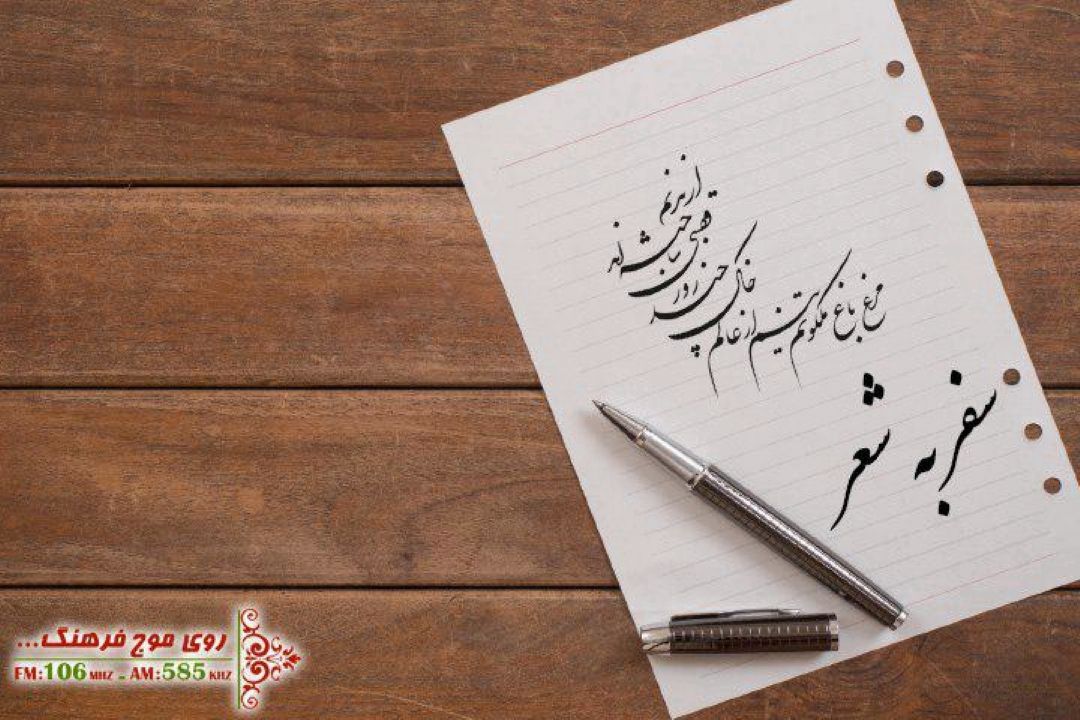 مرغ باغ ملکوتم نیستم از عالم خاک
چند روزی قفسی ساخته‌اند از بدنم
سفر به شعر
روی موج فرهنگ...
FM:106 MHZ - AM:585 KHZ